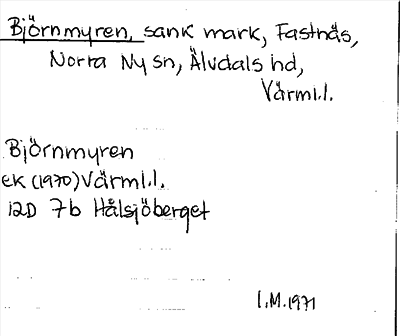 Björnmyren, sank mark, Fastnäs,
Norra Ny sn, Älvdals hd,
Värml.l.
Björnmyren
ek (1970) Värml.l.
12D 7b Hålsjöberget
I.M. 1971